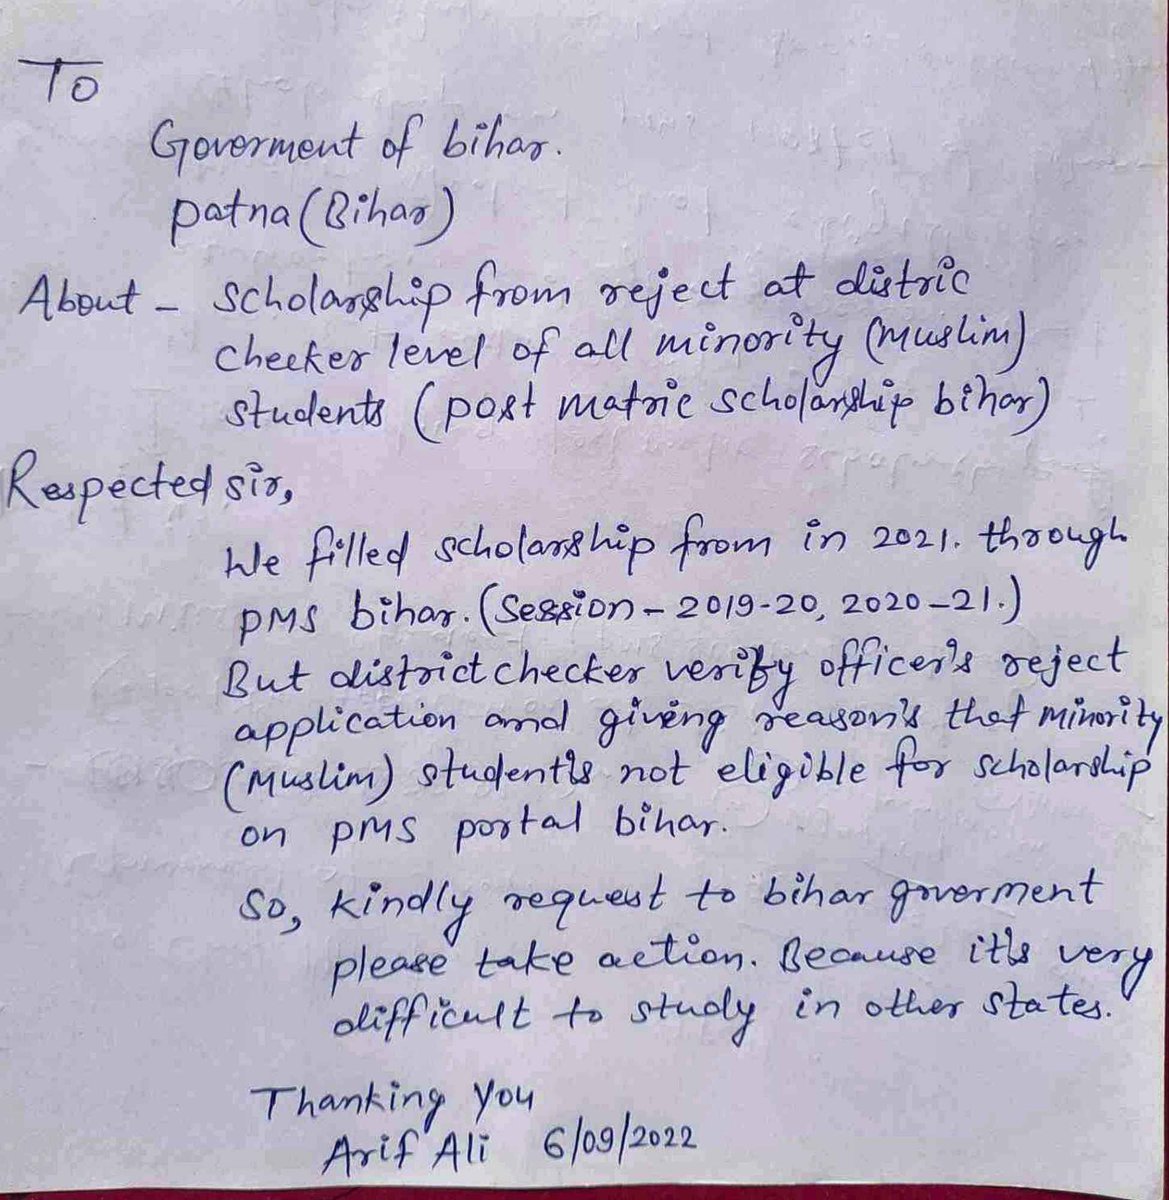 To
Goverment of bihar.
patna (Bihar)
About - scholarship from reject at distric
checker level of all minority (Muslim)
students (post matric scholarship bihar)
Respected sir,
We filled scholarship from in 2021. through
PMS bihar. (Session - 2019-20, 2020-21.)
But district checker verify officer's reject
application and giving reason's that minority
(Muslim) student's not eligible for scholarship
on PMS portal bihar.
So, kindly request to bihar goverment
please take action. Because it's very
difficult to study in other states.
Thanking you
Arif Ali 6/09/2022